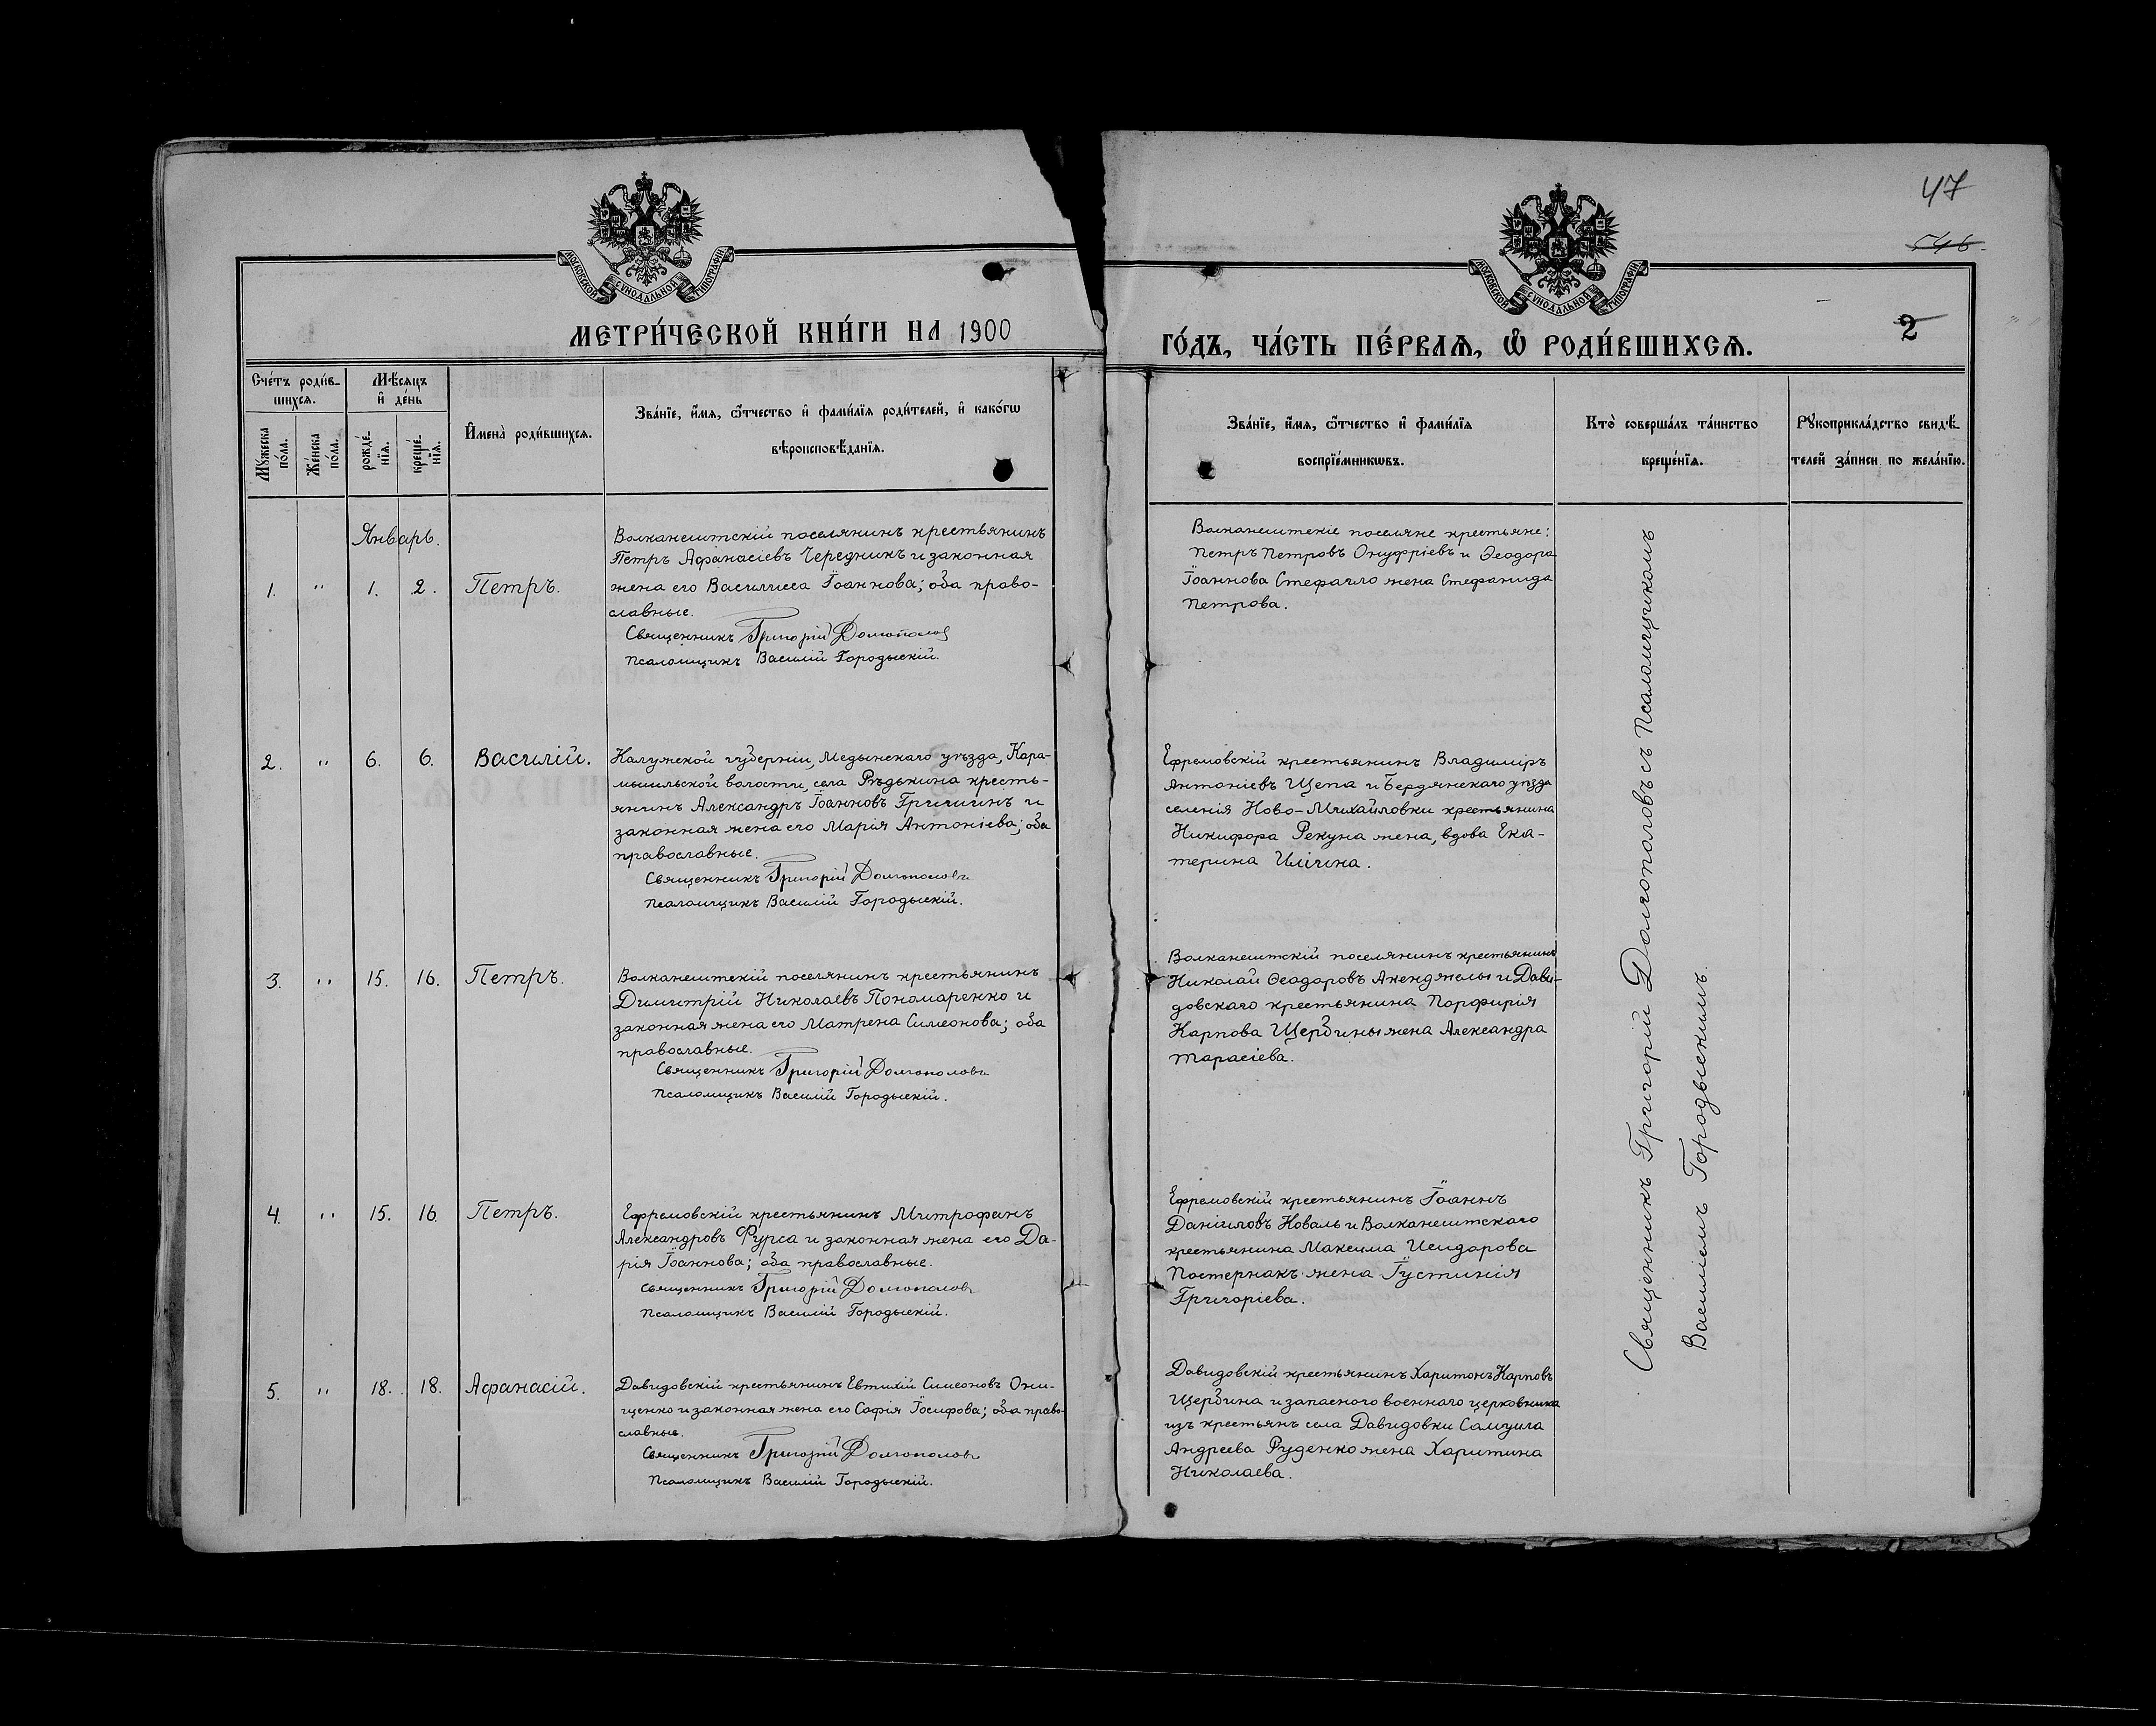 47
546.
МОСКОВСКОЙ СѴНОДАЛЬНОЙ ТИПОГРАФІИ
МОСКОВСКОЙ СѴНОДАЛЬНОЙ ТИПОГРАФІИ
МЕТРИ́ЧЕСКОЙ КНИ́ГИ НА 1900
ГО́ДЪ, ЧА́СТЬ ПЕ́РВАѦ, Ѡ҆ РОДИ́ВШИХСѦ.
2
Сче́тъ роди́в-
шихсѧ.
Мѣ́сѧцъ
и҆ де́нь
Мꙋ́жеска
по́ла.
Же́нска
по́ла.
рожде́-
нїѧ.
креще́-
нїѧ.
И҆мена̀ роди́вшихсѧ.
Зва́нїе, и҆́мѧ, ѻ҆́тчество и҆ фами́лїѧ роди́телей, и҆ како́гѡ
вѣроисповѣ́данїѧ.
Зва́нїе, и҆́мѧ, ѻ҆́тчество и҆ фами́лїѧ
воспрїе́мникѡвъ.
Кто̀ соверша́лъ та́инство
креще́нїѧ.
Рꙋкоприкла́дство свидѣ́-
телей за́писи по жела́нїю.
Январь.
1. " 1. 2. Петръ.
Волканештскій поселянинъ крестьянинъ
Петръ Афанасіевъ Чередникъ и законная
жена его Василисса Іоаннова; оба право-
славные.
Священникъ Григорій Долгополов
Псаломщикъ Василій Городыскій.
Волканештскіе поселяне крестьяне:
Петръ Петровъ Онуфріевъ и Ѳеодора
Іоаннова Стефагло жена Стефанида
Петрова.
2. " 6. 6. Василій.
Калужской губерніи, Медынскаго уѣзда, Кара-
мышльской волости, села Рѣдькина кресть-
янинъ Александръ Іоанновъ Гришинъ и
законная жена его Марія Антоніева; оба
православные.
Священникъ Григорій Долгополовъ
Псаломщикъ Василій Городыскій.
Ефремовскій крестьянинъ Владиміръ
Антоніевъ Щепа и Бердянскаго уѣзда
селенія Ново-Михайловки крестьянина
Никифора Рекуна жена, вдова Ека-
терина Илічна.
3. " 15. 16. Петръ.
Волканештскій поселянинъ крестьянинъ
Димитрій Николаевъ Пономаренко и
законная жена его Матрена Симеонова; оба
православные.
Священникъ Григорій Долгополовъ
Псаломщикъ Василій Городыскій.
Волканештскій поселянинъ крестьянинъ
Николай Ѳеодоровъ Акенджелы и Дави-
довскаго крестьянина Порфирія
Карпова Щербины жена Александра
Тарасіева.
4. " 15. 16. Петръ.
Ефремовскій крестьянинъ Митрофанъ
Александровъ Фурса и законная жена его Да-
рія Іоаннова; оба православные.
Священникъ Григорій Долгополовъ
Псаломщикъ Василій Городыскій.
Ефремовскій крестьянинъ Іоаннъ
Даніиловъ Коваль и Волканештскаго
крестьянина Максима Исидорова
Постернакъ жена Іустинія
Григоріева.
5. " 18. 18. Афанасій.
Давидовскій крестьянинъ Евтихій Симеоновъ Они-
щенко и законная жена его Софія Іосифова; оба право-
славные.
Священникъ Григорій Долгополовъ
Псаломщикъ Василій Городыскій.
Давидовскій крестьянинъ Харитонъ Карповъ
Щербина и запаснаго военнаго церковника
изъ крестьянъ села Давидовки Самуила
Андреева Руденко жена Харитина
Николаева.
Священникъ Григорій Долгополовъ съ Псаломщикомъ
Василіемъ Городыскимъ.